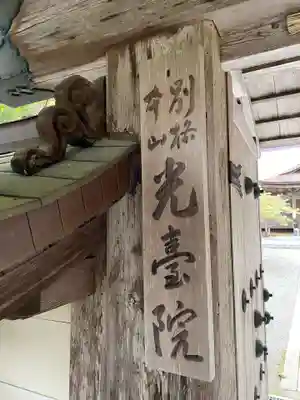 別格
本山
光臺院